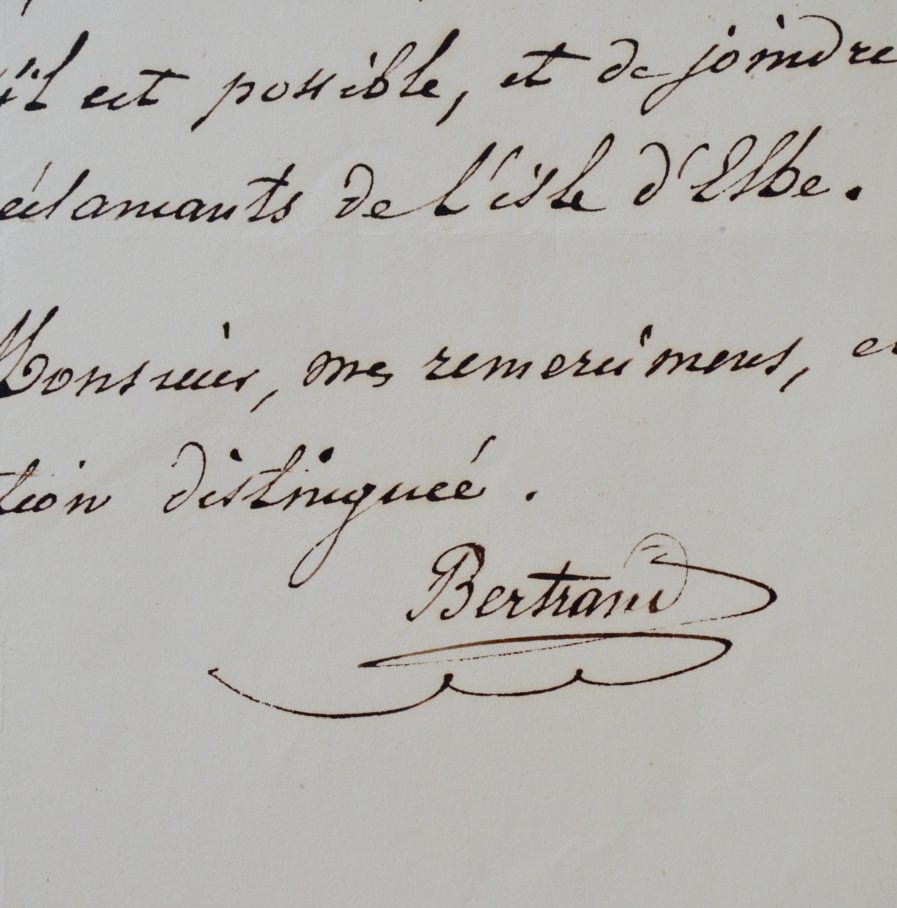 s'il est possible, et de joindre
éclamants de l'isle d'Elbe.
Monsieur, mes remercimens, et
tion distinguée.
Bertrand